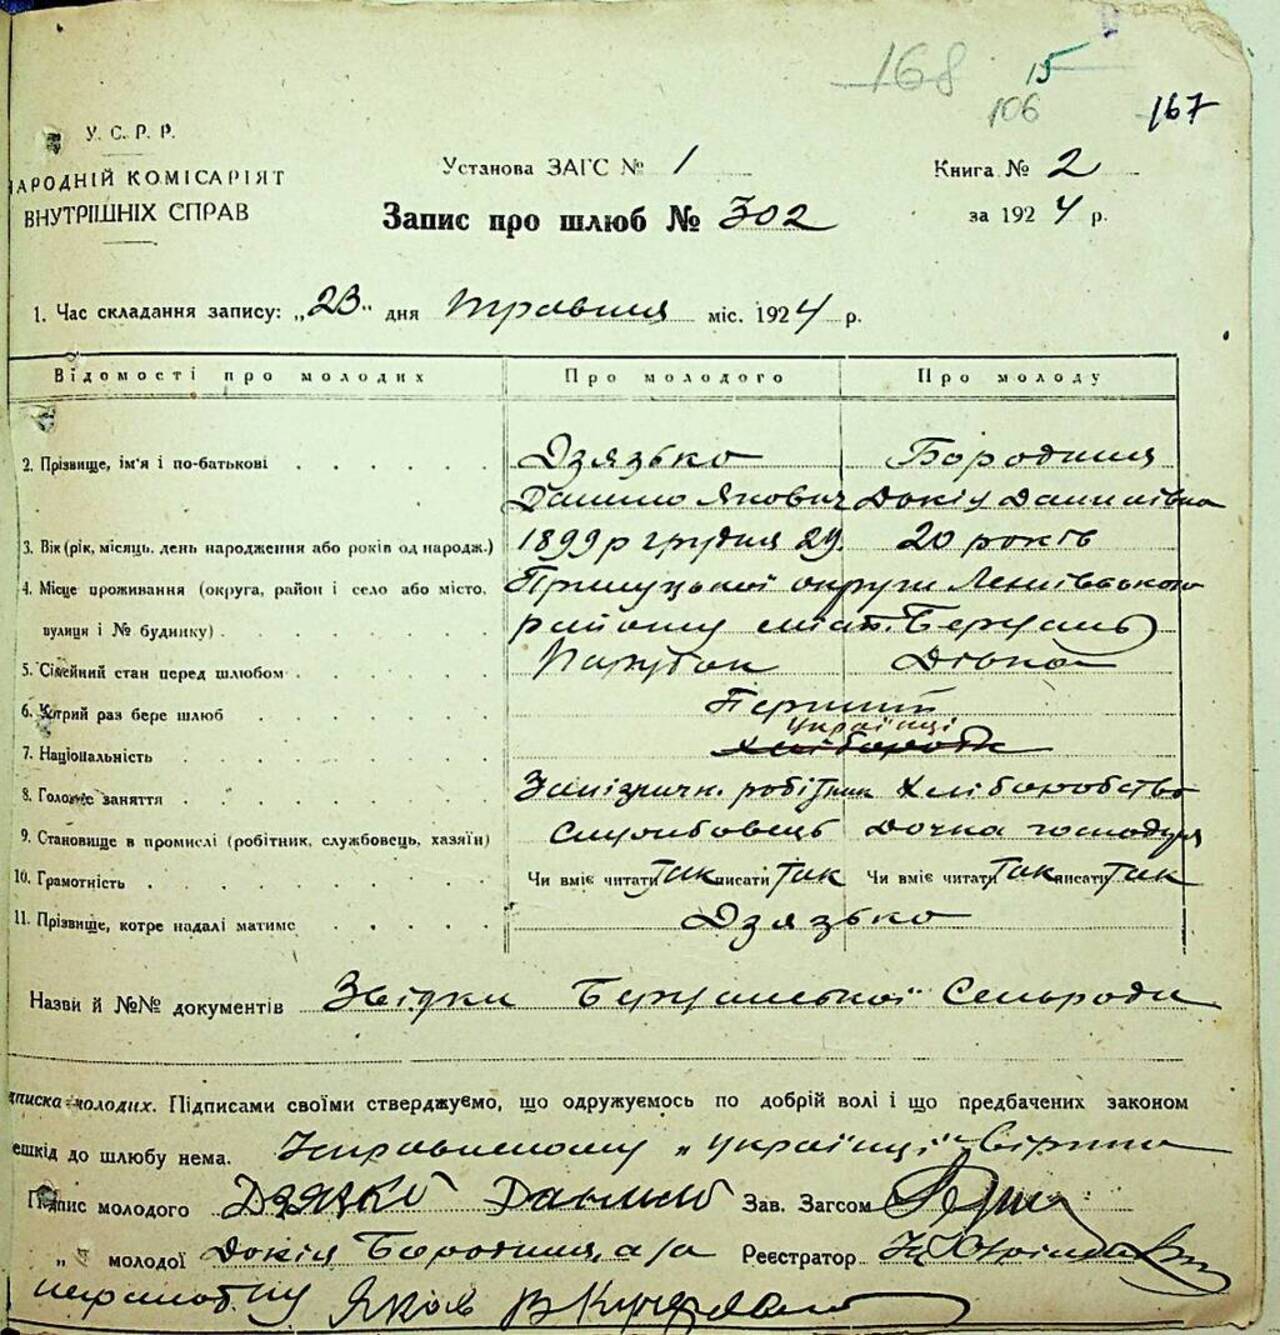 168 15
106 167
У. С. Р. Р.
АРОДНІЙ КОМІСАРІЯТ Установа ЗАГС № 1 Книга № 2
ВНУТРІШНІХ СПРАВ Запис про шлюб № 302 за 1924 р.
1. Час складання запису: „23" дня травня міс. 1924 р.
Відомості про молодих Про молодого Про молоду
2. Прізвище, ім'я і по-батькові Дзязько Бородиня
Данило Якович Докія Данилівна
3. Вік (рік, місяць, день народження або років од народж.) 1899 р грудня 29. 20 років
4. Місце проживання (округа, район і село або місто, Прилуцької округи Леніївського
вулиця і № будинку) району міст. Березань
5. Сімейний стан перед шлюбом Парубок Дівка
6. Котрий раз бере шлюб Перший
українці
7. Національність
8. Головне заняття Залізничн. робітник Хліборобство
9. Становище в промислі (робітник, службовець, хазяїн) Службовець Дочка господаря
10. Грамотність Чи вміє читати так писати так Чи вміє читати так писати так
11. Прізвище, котре надалі матиме Дзязько
Назви й №№ документів Звідки Березанської Сельради
дписка молодих. Підписами своїми стверджуємо, що одружуємось по добрій волі і що предбачених законом
ешкід до шлюбу нема. Исправленому „українці" вірити
Підпис молодого Дзязко Данило Зав. Загсом
„ молодої Докія Бородиня, а за Реєстратор
неграмотну Яков